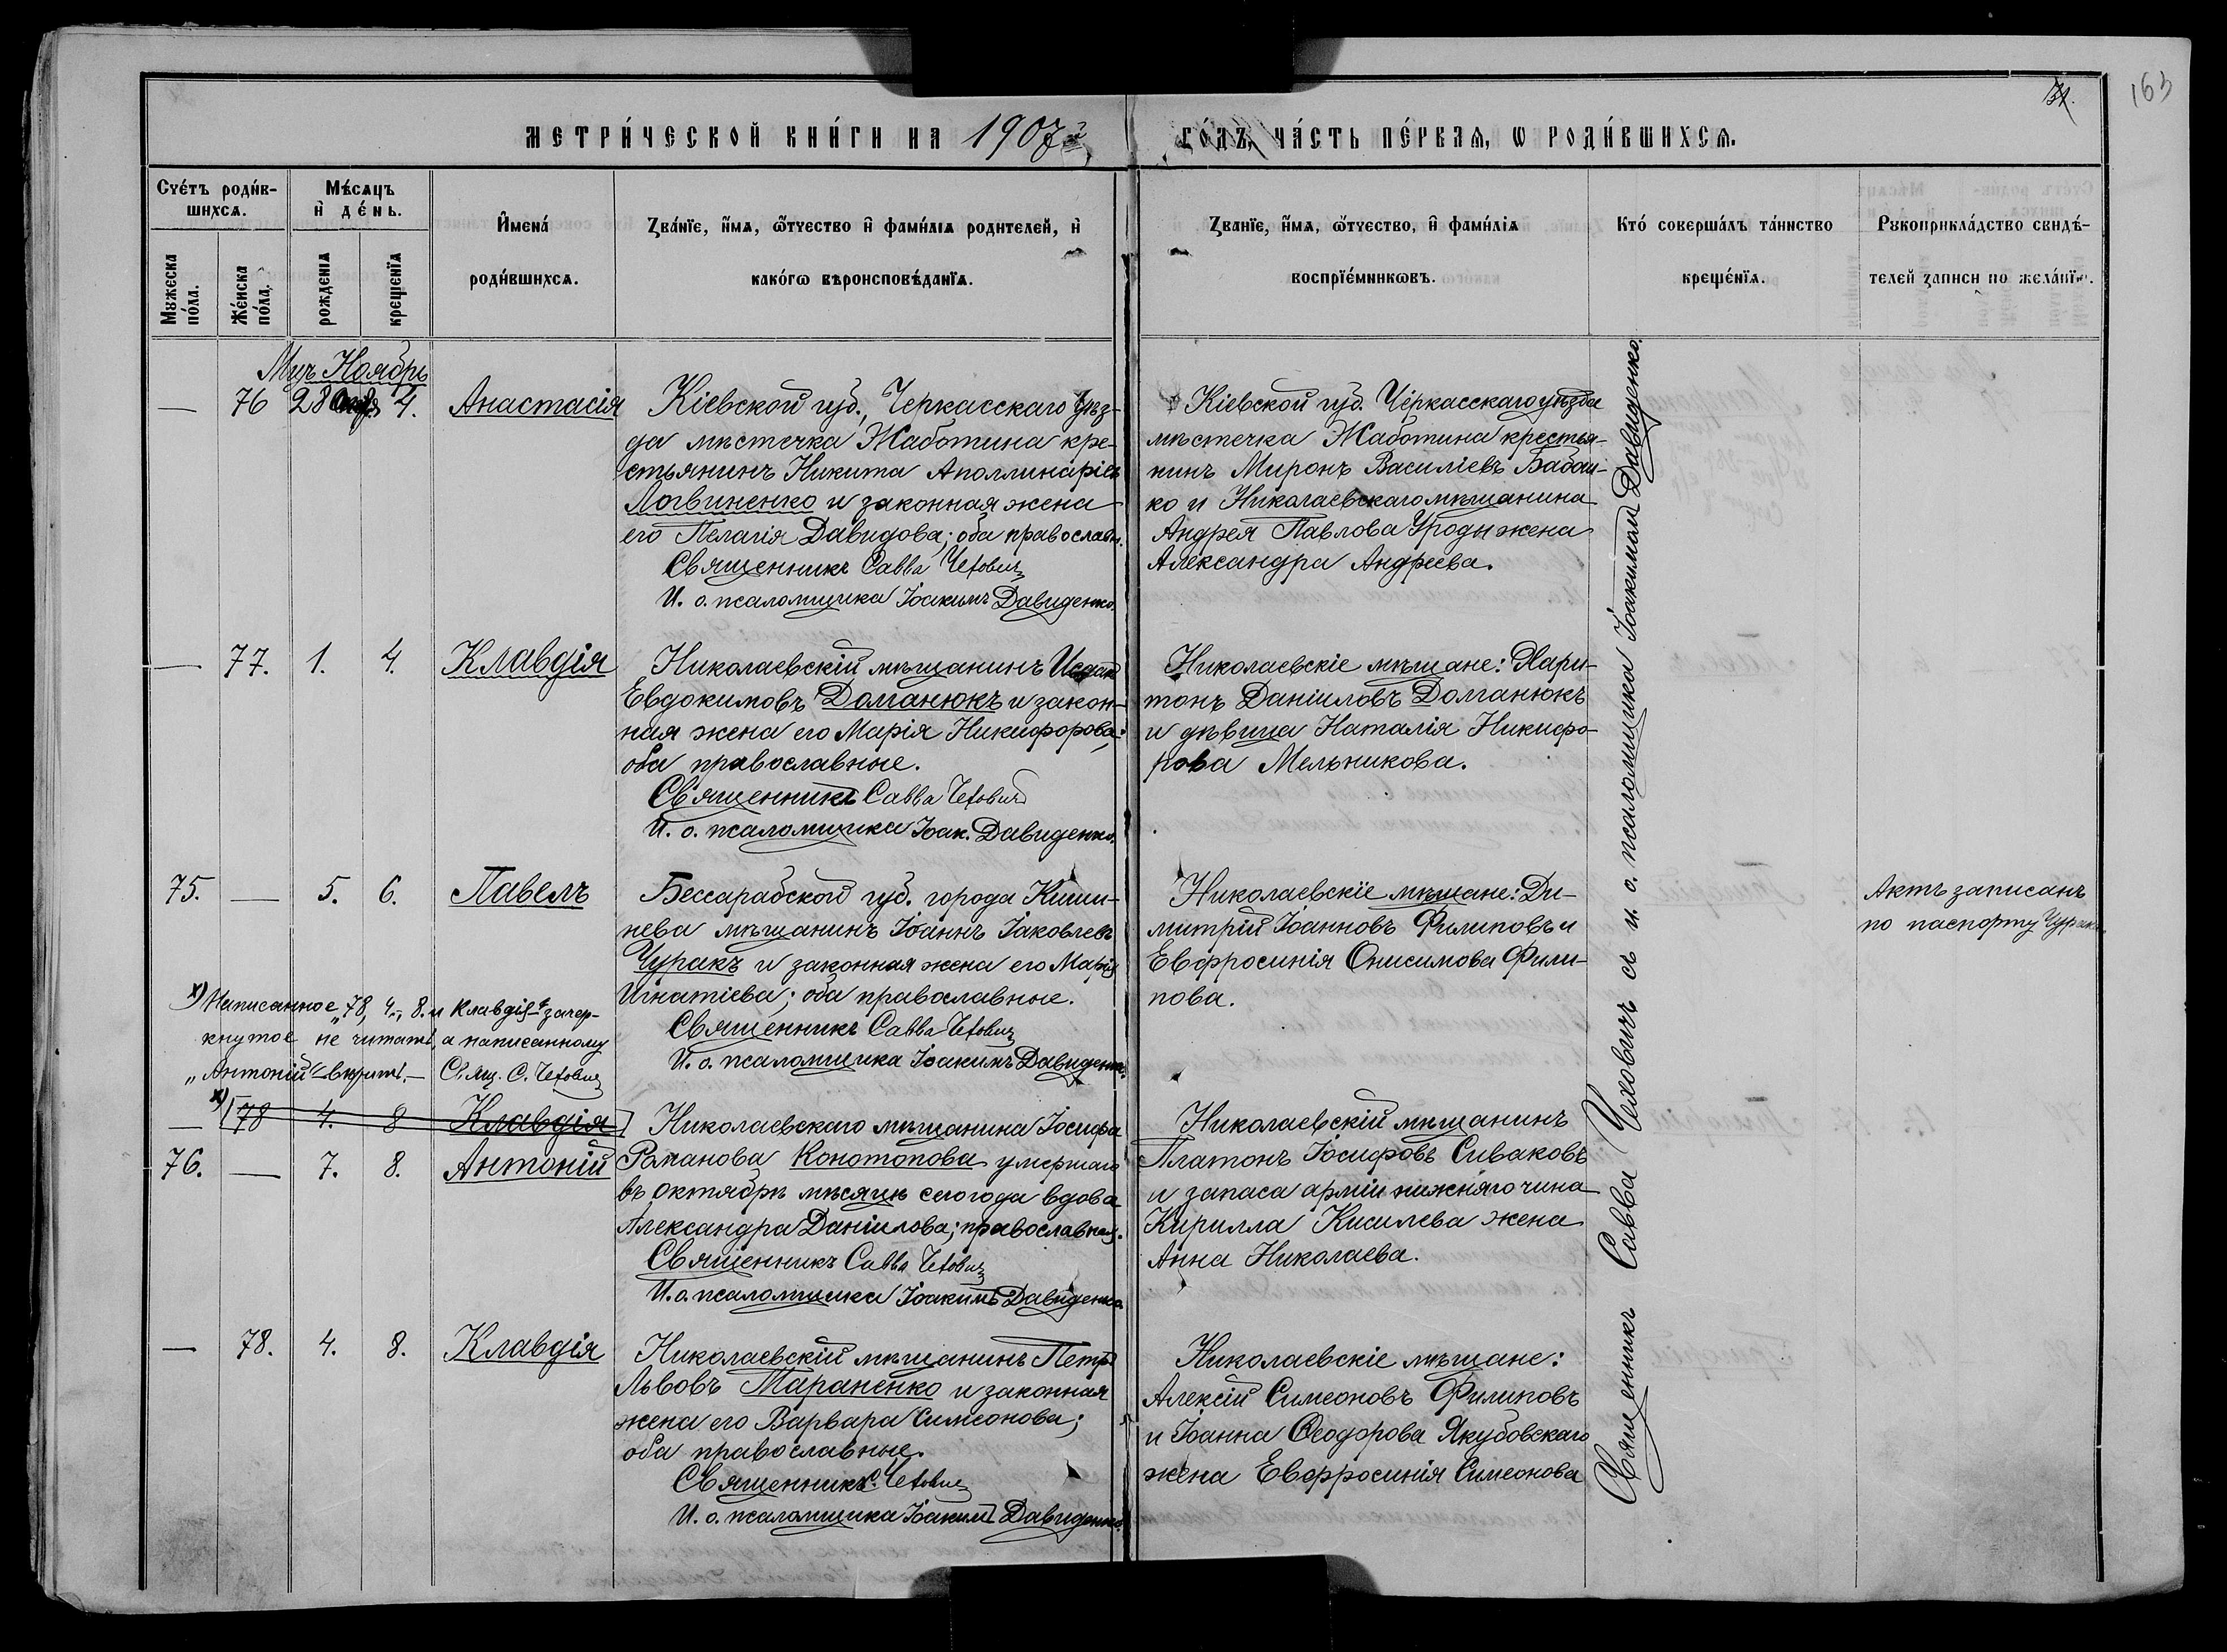 163
31.
МЕТРИ́ЧЕСКОЙ КНИ́ГИ НА 1907й ГО́ДЪ, ЧА́СТЬ ПЕ́РВАЯ, Ѡ РОДИ́ВШИХСЯ.
Сче́тъ роди́в-
шихся.
Мужеска
по́ла.
Же́нска
по́ла.
Мѣ́сяцъ
и҆ де́нь.
рожденія
крещенїя
И҆мена́
роди́вшихся.
Зва́нїе, и҆́мя, ѻ҆́тчество и҆ фами́лїя родителей, и҆
како́гѡ вѣроисповѣ́данїѧ.
Зва́нїе, и҆́мя, ѻ҆́тчество, и҆ фами́лїя
воспрїе́мниковъ.
Кто́ соверша́лъ та́инство
креще́нїя.
Рукоприкла́дство свидѣ́-
телей записи по жела́нїю.
Мцъ Ноябрь
— 76 28 окт. 4. Анастасія
Кіевской губ., Черкасскаго уѣз-
да мѣстечка Жаботина кре-
стьянинъ Никита Аполлинаріевъ
Логвиненко и законная жена
его Пелагія Давидова; оба православн.
Священникъ Савва Чехович
И. о. псаломщика Іоакимъ Давиденко.
Кіевской губ. Черкасскаго уѣзда
мѣстечка Жаботина крестья-
нинъ Миронъ Василіевъ Бабай-
ко и Николаевскаго мѣщанина
Андрея Павлова Уроды жена
Александра Андреева.
— 77. 1. 4. Клавдія
Николаевскій мѣщанинъ Исаак
Евдокимовъ Долганюкъ и закон-
ная жена его Марія Никифорова;
оба православные.
Священникъ Савва Чехович
И. о. псаломщика Іоак. Давиденко.
Николаевскіе мѣщане: Хари-
тонъ Даніиловъ Долганюкъ
и дѣвица Наталія Никифо-
рова Мельникова.
75. — 5. 6. Павелъ
Бессарабской губ. города Киши-
нева мѣщанинъ Іоаннъ Іаковлевъ
Чуракъ и законная жена его Марія
Игнатіева; оба православные.
Священникъ Савва Чехович
И. о. псаломщика Іоакимъ Давиденко.
Николаевскіе мѣщане: Ди-
митрій Іоанновъ Филиповъ и
Евфросинія Онисимова Фили-
пова.
Актъ записанъ
по паспорту Чурака.
х) Написанное „78, 4., 8. и Клавдія“ зачер-
кнутое не читать, а написанному
„Антоній“ вѣрить.— Свящ. С. Чехович
х) — 78 4. 8 Клавдія
76. — 7. 8. Антоній
Николаевскаго мѣщанина Іосифа
Романова Конотопова умершаго
въ октябрѣ мѣсяцѣ сего года вдова
Александра Даніилова; православная.
Священникъ Савва Чехович
И. о. псаломщика Іоакимъ Давиденко
Николаевскій мѣщанинъ
Платонъ Іосифовъ Сиваковъ
и запаса арміи нижняго чина
Кирилла Кисилева жена
Анна Николаева.
— 78. 4. 8. Клавдія
Николаевскій мѣщанинъ Петръ
Львовъ Тараненко и законная
жена его Варвара Симеонова;
оба православные.
Священникъ С. Чехович
И. о. псаломщика Іоакимъ Давиденко.
Николаевскіе мѣщане:
Алексій Симеоновъ Филиповъ
и Іоанна Ѳеодорова Якубовскаго
жена Евфросинія Симеонова
Священникъ Савва Чеховичъ съ и. о. псаломщика Іоакимомъ Давиденко.